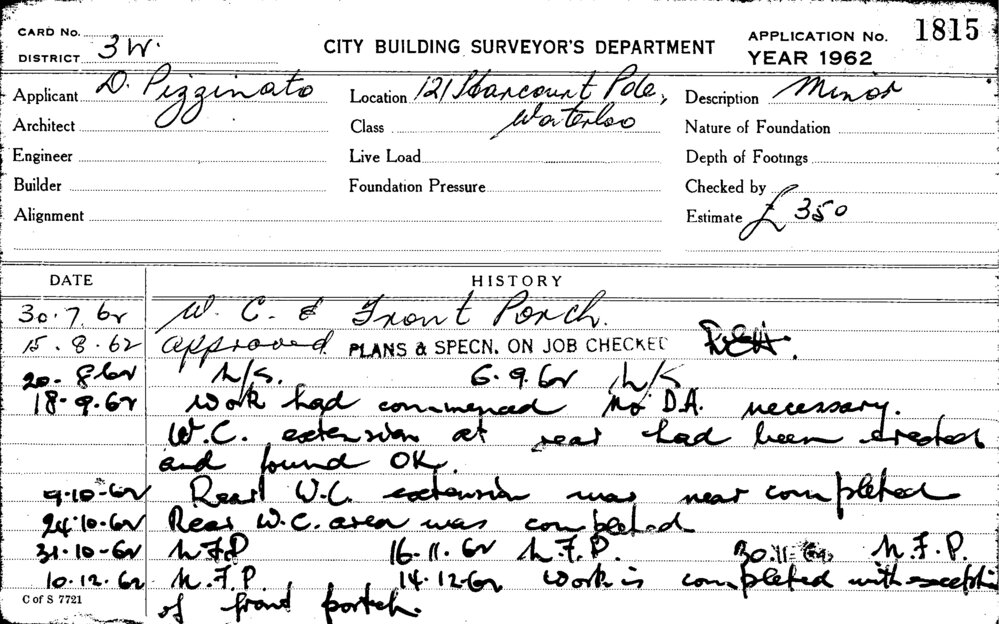 CARD No.
DISTRICT 3W.
CITY BUILDING SURVEYOR'S DEPARTMENT
APPLICATION No. 1815
YEAR 1962
Applicant D. Pizzinato Location 121 Harcourt Pde, Description Minor
Architect Class Waterloo Nature of Foundation
Engineer Live Load Depth of Footings
Builder Foundation Pressure Checked by
Alignment Estimate £350
DATE HISTORY
30.7.62 W.C. & Front Porch.
15.8.62 approved PLANS & SPECN. ON JOB CHECKED
20-8-62 N/S. 6.9.62 N/S
18-9.62 Work had commenced No D.A. necessary.
W.C. extension at rear had been erected
and found OK.
9-10-62 Rear W.C. extension was near completed
24-10-62 Rear W.C. area was completed
31-10-62 N.F.P 16.11.62 N.F.P. 30.11.62 N.F.P.
10.12.62 N.F.P 14.12.62 Work is completed with exceptin
of front portch.
C of S 7721